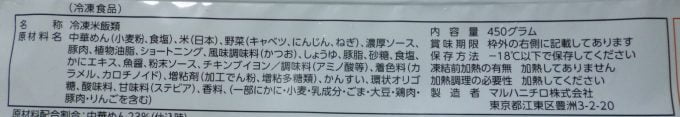 (冷凍食品)
名称 冷凍米飯類
原材料名 中華めん(小麦粉、食塩)、米(日本)、野菜(キャベツ、にんじん、ねぎ)、濃厚ソース、
豚肉、植物油脂、ショートニング、風味調味料(かつお)、しょうゆ、豚脂、砂糖、食塩、
かにエキス、魚醤、粉末ソース、チキンブイヨン/調味料(アミノ酸等)、着色料(カ
ラメル、カロチノイド)、増粘剤(加工でん粉、増粘多糖類)、かんすい、環状オリゴ
糖、酸味料、甘味料(ステビア)、香料、(一部にかに・小麦・乳成分・ごま・大豆・鶏肉・
豚肉・りんごを含む)
内容量 450グラム
賞味期限 枠外の右側に記載してあります
保存方法 -18℃以下で保存してください
凍結前加熱の有無 加熱してありません
加熱調理の必要性 加熱してください
製造者 マルハニチロ株式会社
東京都江東区豊洲3-2-20
原材料配合割合:中華めん23%(仕込時)